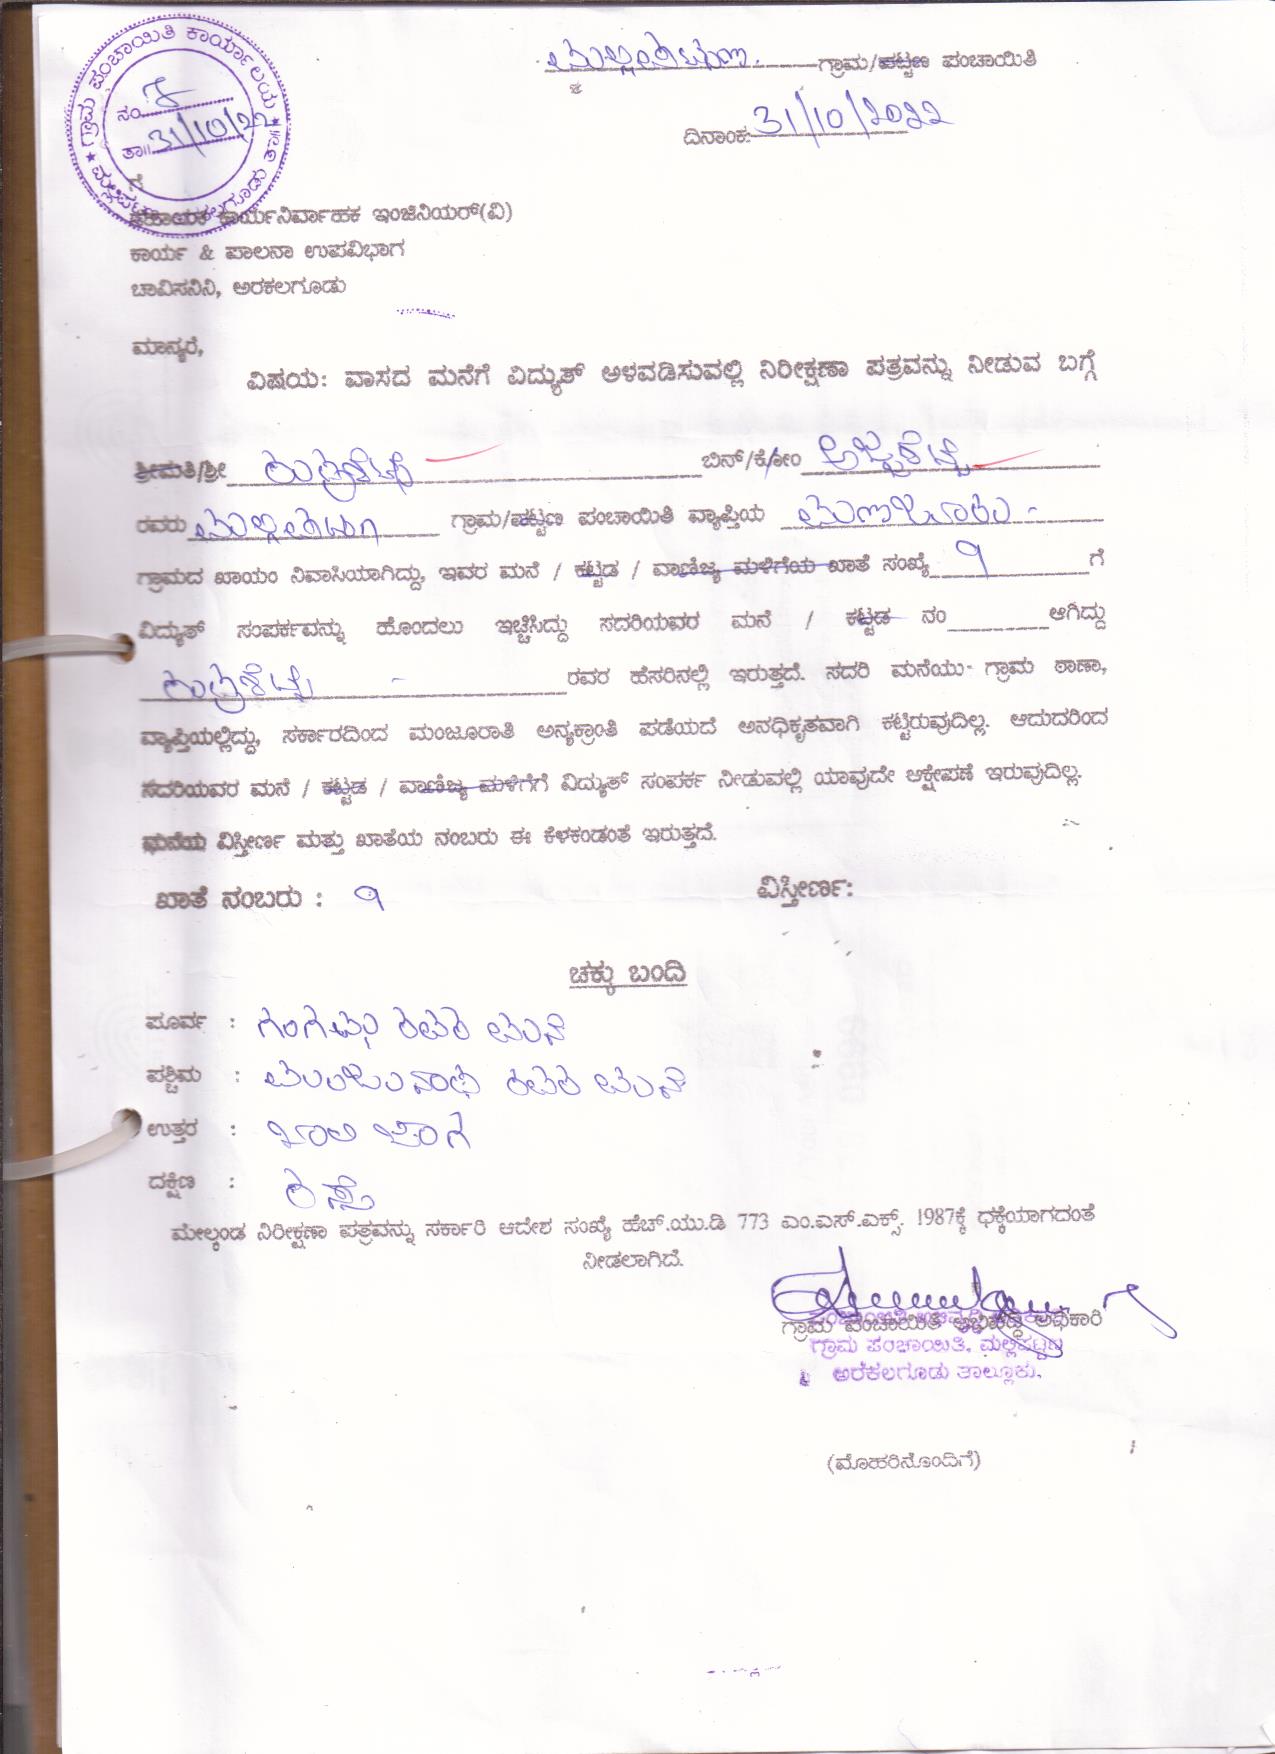 ಗ್ರಾಮ ಪಂಚಾಯಿತಿ ಕಾರ್ಯಾಲಯ
ನಂ.
ತಾ॥ 31/10/22
ಗ್ರಾಮ/ಪಟ್ಟಣ ಪಂಚಾಯಿತಿ
ದಿನಾಂಕ: 31/10/2022
ಗೆ
ಸಹಾಯಕ ಕಾರ್ಯನಿರ್ವಾಹಕ ಇಂಜಿನಿಯರ್(ವಿ)
ಕಾರ್ಯ & ಪಾಲನಾ ಉಪವಿಭಾಗ
ಚಾವಿಸನಿನಿ, ಅರಕಲಗೂಡು
ಮಾನ್ಯರೆ,
ವಿಷಯ: ವಾಸದ ಮನೆಗೆ ವಿದ್ಯುತ್ ಅಳವಡಿಸುವಲ್ಲಿ ನಿರೀಕ್ಷಣಾ ಪತ್ರವನ್ನು ನೀಡುವ ಬಗ್ಗೆ
ಶ್ರೀಮತಿ/ಶ್ರೀ ರುದ್ರಶೆಟ್ಟಿ ಬಿನ್/ಕೋಂ ಅಜ್ಜಶೆಟ್ಟಿ
ರವರು ಗ್ರಾಮ/ಪಟ್ಟಣ ಪಂಚಾಯಿತಿ ವ್ಯಾಪ್ತಿಯ
ಗ್ರಾಮದ ಖಾಯಂ ನಿವಾಸಿಯಾಗಿದ್ದು, ಇವರ ಮನೆ / ಕಟ್ಟಡ / ವಾಣಿಜ್ಯ ಮಳಿಗೆಯ ಖಾತೆ ಸಂಖ್ಯೆ ೧ ಗೆ
ವಿದ್ಯುತ್ ಸಂಪರ್ಕವನ್ನು ಹೊಂದಲು ಇಚ್ಛಿಸಿದ್ದು ಸದರಿಯವರ ಮನೆ / ಕಟ್ಟಡ ನಂ ಆಗಿದ್ದು
ರುದ್ರಶೆಟ್ಟಿ ರವರ ಹೆಸರಿನಲ್ಲಿ ಇರುತ್ತದೆ. ಸದರಿ ಮನೆಯು ಗ್ರಾಮ ಠಾಣಾ,
ವ್ಯಾಪ್ತಿಯಲ್ಲಿದ್ದು, ಸರ್ಕಾರದಿಂದ ಮಂಜೂರಾತಿ ಅನ್ಯಕ್ರಾಂತಿ ಪಡೆಯದೆ ಅನಧಿಕೃತವಾಗಿ ಕಟ್ಟಿರುವುದಿಲ್ಲ. ಆದುದರಿಂದ
ಸದರಿಯವರ ಮನೆ / ಕಟ್ಟಡ / ವಾಣಿಜ್ಯ ಮಳಿಗೆಗೆ ವಿದ್ಯುತ್ ಸಂಪರ್ಕ ನೀಡುವಲ್ಲಿ ಯಾವುದೇ ಆಕ್ಷೇಪಣೆ ಇರುವುದಿಲ್ಲ.
ಮನೆಯ ವಿಸ್ತೀರ್ಣ ಮತ್ತು ಖಾತೆಯ ನಂಬರು ಈ ಕೆಳಕಂಡಂತೆ ಇರುತ್ತದೆ.
ಖಾತೆ ನಂಬರು : ೧ ವಿಸ್ತೀರ್ಣ:
ಚಕ್ಕು ಬಂದಿ
ಪೂರ್ವ : ಗಂಗಮ್ಮ ರವರ ಮನೆ
ಪಶ್ಚಿಮ : ಮಂಜುನಾಥ ರವರ ಮನೆ
ಉತ್ತರ : ಖಾಲಿ ಜಾಗ
ದಕ್ಷಿಣ : ರಸ್ತೆ
ಮೇಲ್ಕಂಡ ನಿರೀಕ್ಷಣಾ ಪತ್ರವನ್ನು ಸರ್ಕಾರಿ ಆದೇಶ ಸಂಖ್ಯೆ ಹೆಚ್.ಯು.ಡಿ 773 ಎಂ.ಎಸ್.ಎಕ್ಸ್. 1987ಕ್ಕೆ ಧಕ್ಕೆಯಾಗದಂತೆ
ನೀಡಲಾಗಿದೆ.
ಗ್ರಾಮ ಪಂಚಾಯಿತಿ ಅಭಿವೃದ್ಧಿ ಅಧಿಕಾರಿ
ಗ್ರಾಮ ಪಂಚಾಯಿತಿ, ಮಲ್ಲಿಪಟ್ಟಣ
ಅರಕಲಗೂಡು ತಾಲ್ಲೂಕು.
(ಮೊಹರಿನೊಂದಿಗೆ)